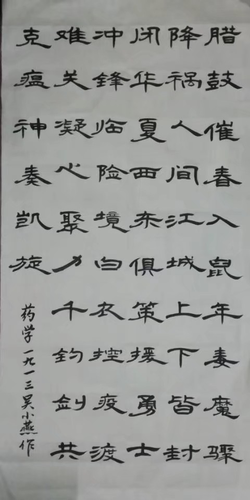 腊鼓催春入鼠年毒魔骤
降祸人间江城上下皆封
闭华夏西东俱策援勇士
冲锋临险境白衣控疫渡
难关凝心聚力千钧剑共
克瘟神奏凯旋
药学一九一三吴小燕作